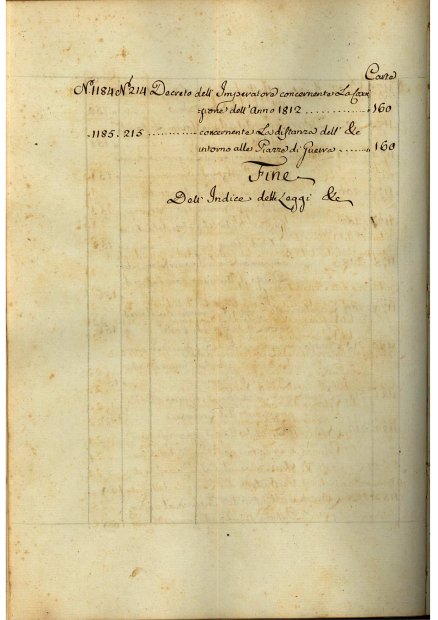 Carte
Nº 1184 Nº 214 Decreto dell' Imperatore concernente La
zione dell'Anno 1812 ............. 160
1185. 215 ........... concernente La distanza dell' &c
intorno alle Piazze di Guerra ....... 160
Fine
Dell' Indice delle Leggi &c